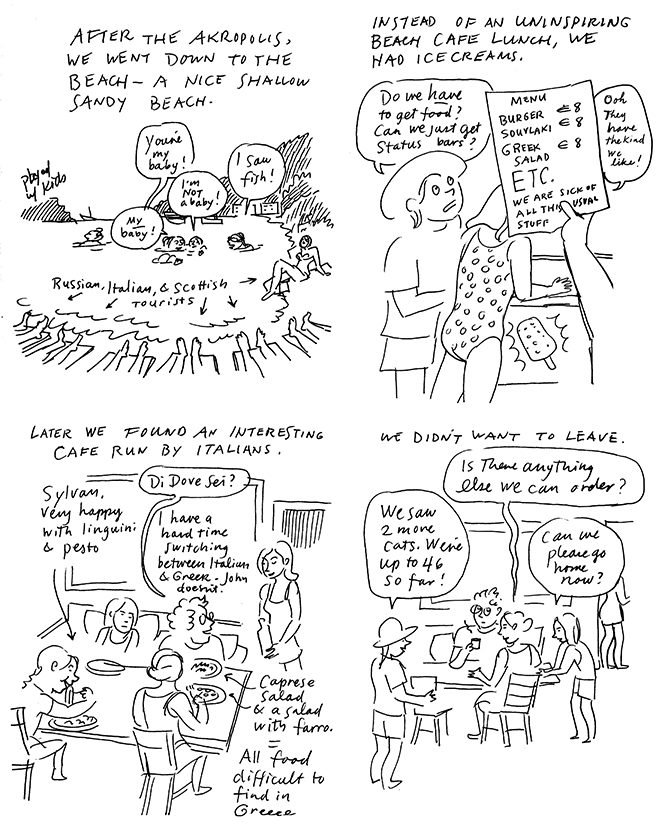 AFTER THE AKROPOLIS,
WE WENT DOWN TO THE
BEACH – A NICE SHALLOW
SANDY BEACH.
You're
my
baby!
I saw
fish!
I'm
NOT
a baby!
My
baby!
played
w/ kids
Russian, Italian, & Scottish
TOURISTS
INSTEAD OF AN UNINSPIRING
BEACH CAFE LUNCH, WE
HAD ICECREAMS.
Do we have
to get food?
Can we just get
status bars?
MENU
BURGER € 8
SOUVLAKI € 8
GREEK € 8
SALAD
ETC.
WE ARE SICK OF
ALL THIS USUAL
STUFF
Ooh
They
have
the kind
we
like!
LATER WE FOUND AN INTERESTING
CAFE RUN BY ITALIANS.
Sylvan,
very happy
with linguini
& pesto
Di Dove Sei?
I have a
hard time
switching
between Italian
& Greek - John
doesn't.
Caprese
salad
& a salad
with farro.
=
All food
difficult to
find in
Greece
WE DIDN'T WANT TO LEAVE.
Is there anything
else we can order?
We saw
2 more
cats. We're
up to 46
so far!
Can we
please go
home
now?